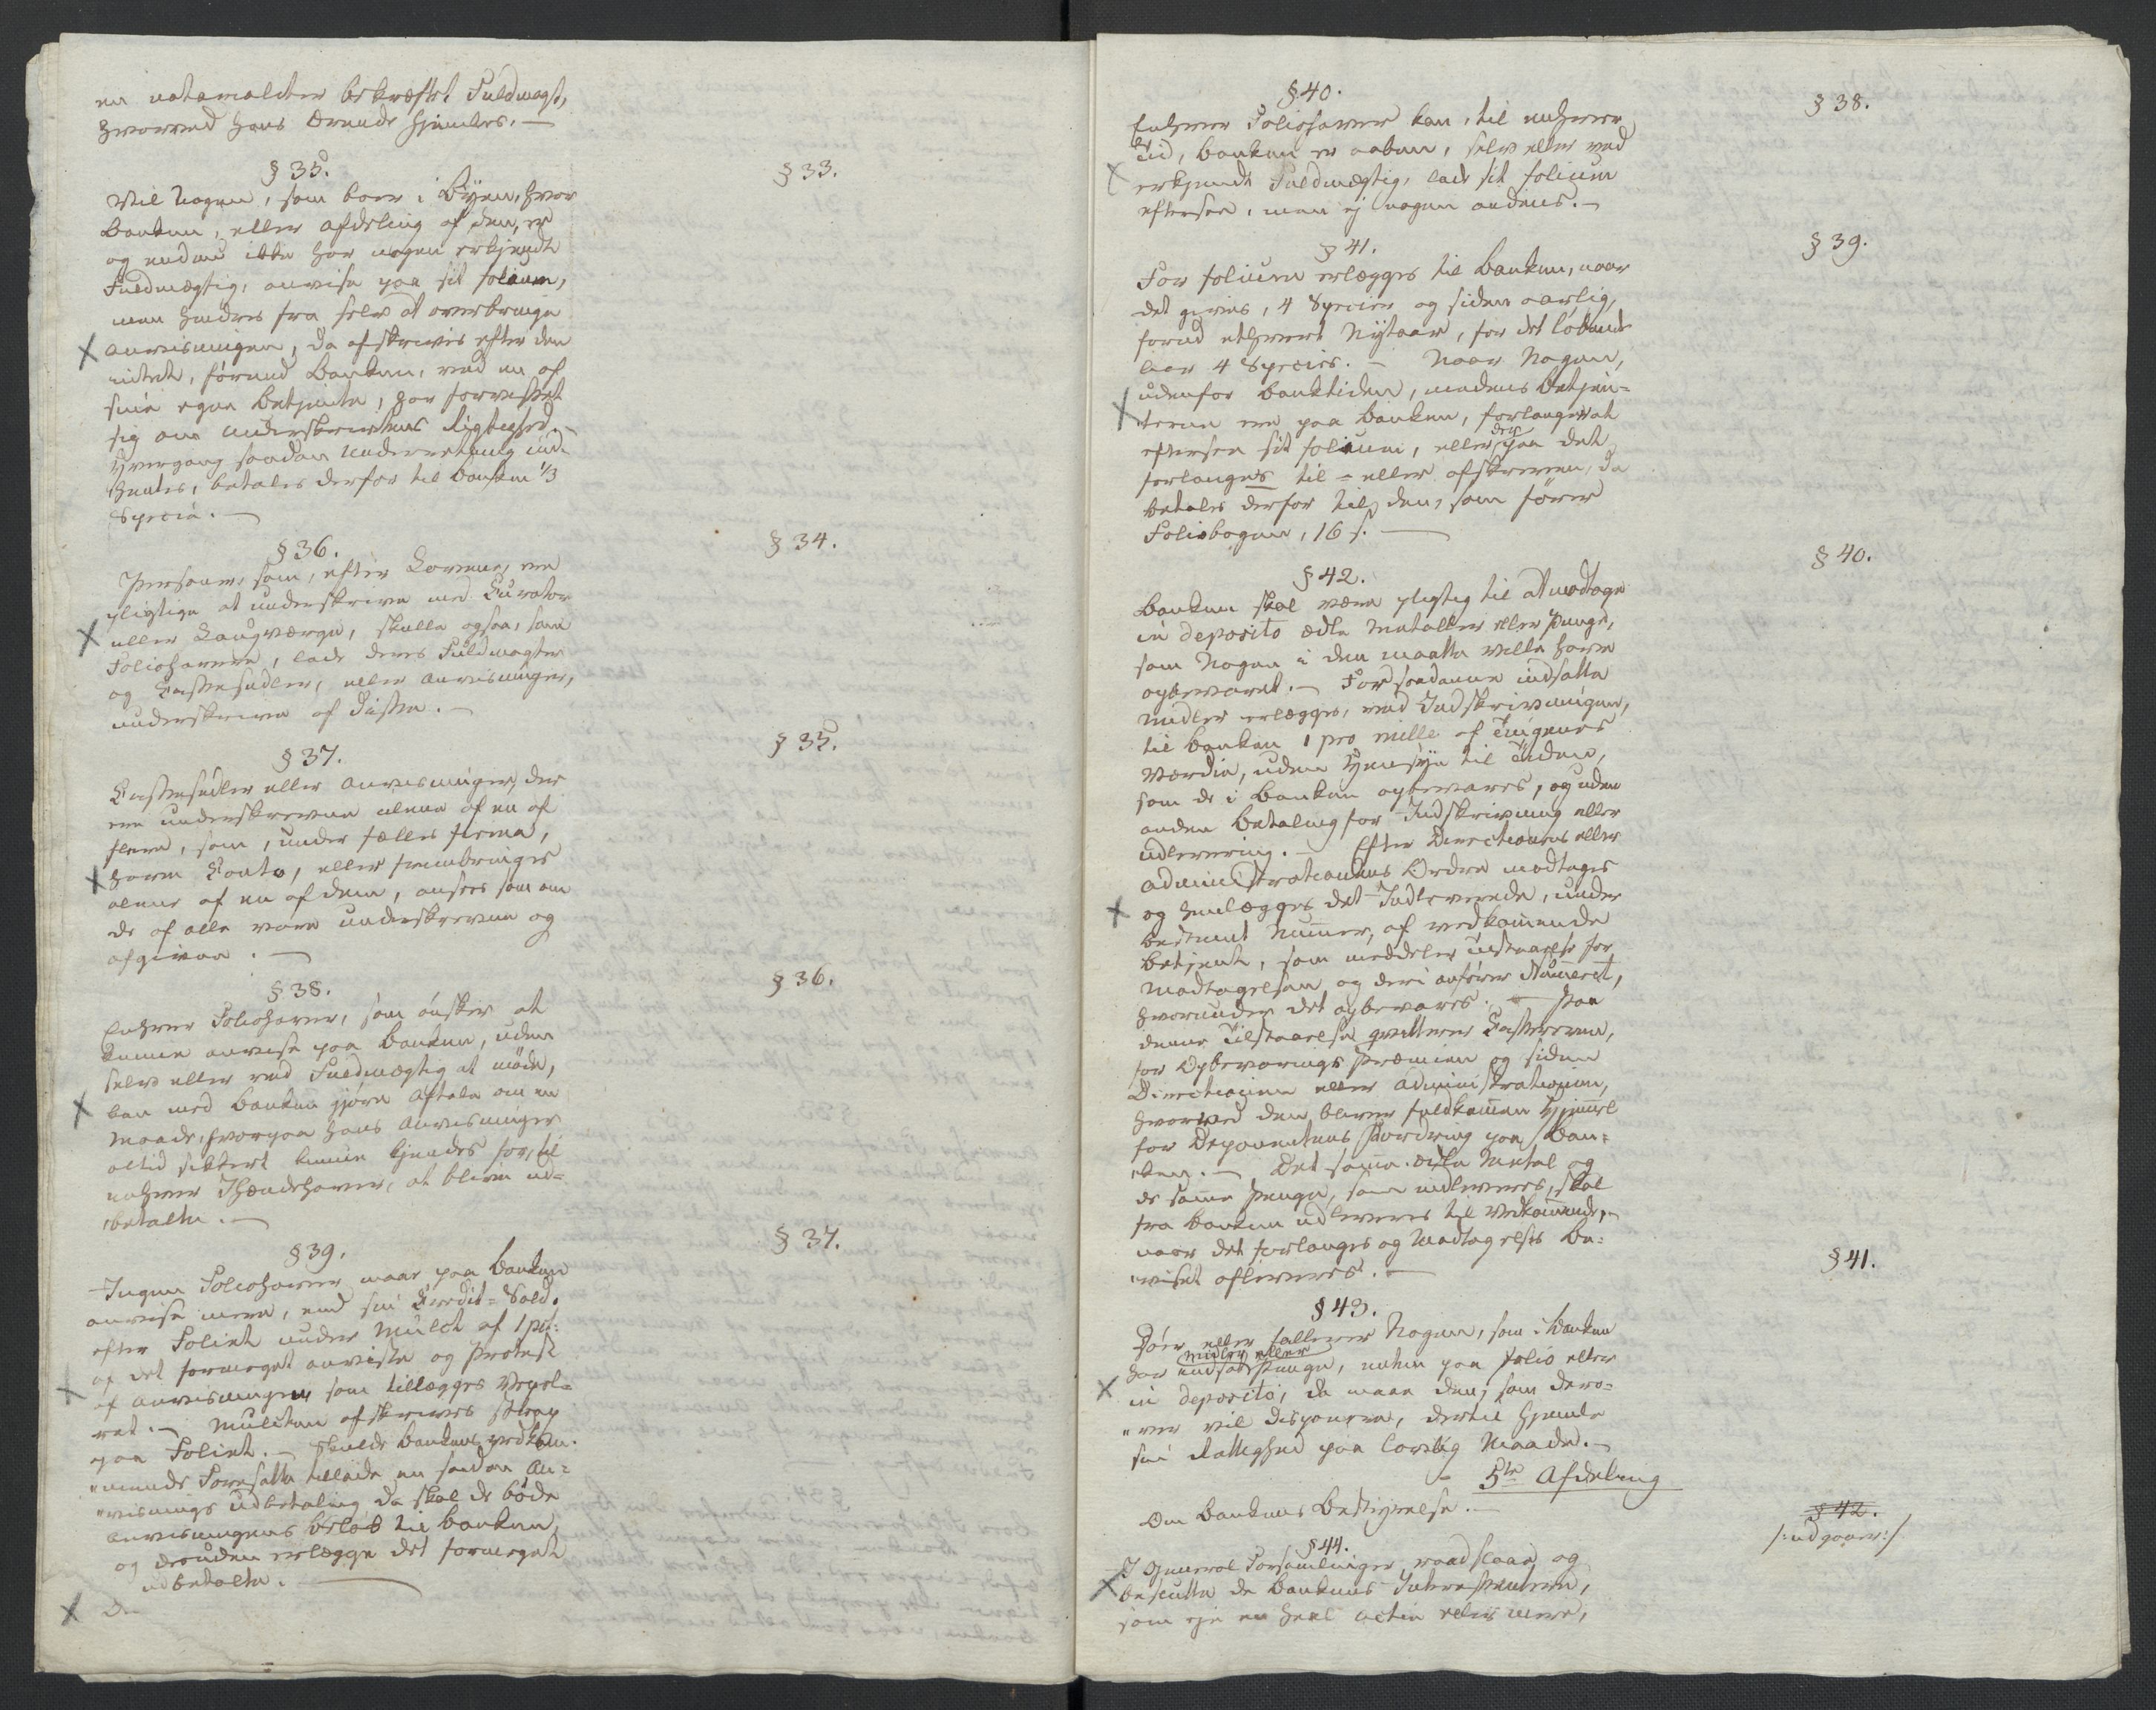 en notarialiter bekræftet Fuldmagt,
hvorved hans Ærende hjemles. —
§ 35.
§ 33.
Vil Nogen, som boer i Byen, hvor
Banken, eller Afdeling af den, er
og endnu ikke har nogen erkjendt
Fuldmægtig, anvise paa sit folium,
men hindres fra selv at overbringe
Anvisningen, da afskrives efter den
intet, förend Banken, ved en af
sine egne Betjente, har forvisset
sig om Underskriftens Rigtighed. —
Hvergang saadan Underretning ind-
hentes, betales derfor til Banken 1/3
Specie. —
§ 36.
§ 34.
Personer, som, efter Lovene, ere
pligtige at underskrive med Curator
eller Laugværge, skulle ogsaa, som
Foliohavere, lade deres Fuldmagter
og Cassesedler, eller Anvisninger,
underskrive af disse. —
§ 37.
§ 35.
Cassesedler eller Anvisninger, der
ere underskrevne alene af en af
flere, som, under fælles firma,
have Conto, eller frembringes
alene af en af dem, ansees som om
de af alle vare underskrevne og
afgivne. —
§ 38.
§ 36.
Enhver Foliohaver, som ønsker at
kunne anvise paa Banken, uden
selv eller ved Fuldmægtig at möde,
kan med Banken gjöre Aftale om en
Maade, hvorpaa hans Anvisninger
altid sikkert kunne kjendes for, til
enhver Ihændehaver, at blive ud-
"betalte. —
§ 39.
§ 37.
Ingen Foliohaver maae paa Banken
anvise mere, end sin Credit-Sald.
efter Foliet under Mulct af 1 pct:
af det formeget anviste og Protest
af Anvisningen som tillægges Vexel-
ret. — Mulcten afskrives strax
paa Foliet. — Skulde Bankens vedkom-
"mende Foresatte tillade en saadan An-
"visnings Udbetaling da skal de böde
Anvisningens Belöb til Banken,
og desuden erlægge det formeget
udbetalte. —
De
§ 40.
§ 38.
Enhver Foliohaver kan, til enhver
Tid, Banken er aaben, selv eller ved
erkjendt Fuldmægtig, lade sit folium
eftersee, men ej nogen andens. —
§ 41.
§ 39.
For folium erlægges til Banken, naar
det gives, 4 Specier og siden aarlig,
forud ethvert Nytaar, for det löbende
Aar 4 Specier. — Naar Nogen,
udenfor Banktiden, medens Betjen-
"terne ere paa Banken, forlanger at
eftersee sit folium, eller der paa det
forlanges til- eller afskreven, da
betales derfor til den, som förer
Foliobogen, 16 s. —
§ 42.
§ 40.
Banken skal være pligtig til at modtage
in deposito ædle Metaller eller Penge,
som Nogen i den maatte ville have
opbevaret. — For saadanne indsatte
Midler erlægges, ved Indskrivningen,
til Banken 1 pro mille af Tingenes
Værdie, uden Hensyn til Tiden,
som de i Banken opbevares, og uden
anden Betaling for Indskrivning eller
Udlevering. — Efter Directionens eller
Administrationens Ordre modtages
og henlægges det Indleverede, under
bestemt Numer, af vedkommende
Betjent, som meddeler Tilstaaelse for
Modtagelsen, og deri anförer Numeret,
hvorunder det opbevares. — Paa
denne Tilstaaelse qvitterer Cassereren,
for Opbevarings Præmien og siden
Directionen eller Administrationen,
hvorved den bliver fuldkommen Hjemmel
for Deponentens Fordring paa Ban-
"ken. — Det samme ædle Metal og
de samme Penge, som indleveres, skal
fra Banken udleveres til Vedkommende, —
naar det forlanges og Modtagelses Be-
"viset afleveres. —
§ 43.
§ 41.
Döer eller fallerer Nogen, som i Banken
har indsatt Midler eller Penge, enten paa folio eller
in deposito, da maae den, som dero-
"ver vil disponere, dertil hjemle
sin Rettighed paa lovlig Maade. —
5te Afdeling
Om Bankens Bestyrelse. —
§ 42.
/:udgaaer:/
§ 44.
I General Forsamlinger raadslaae og
beslutte de Bankens Interessentere,
som eje en heel Actie eller mere,